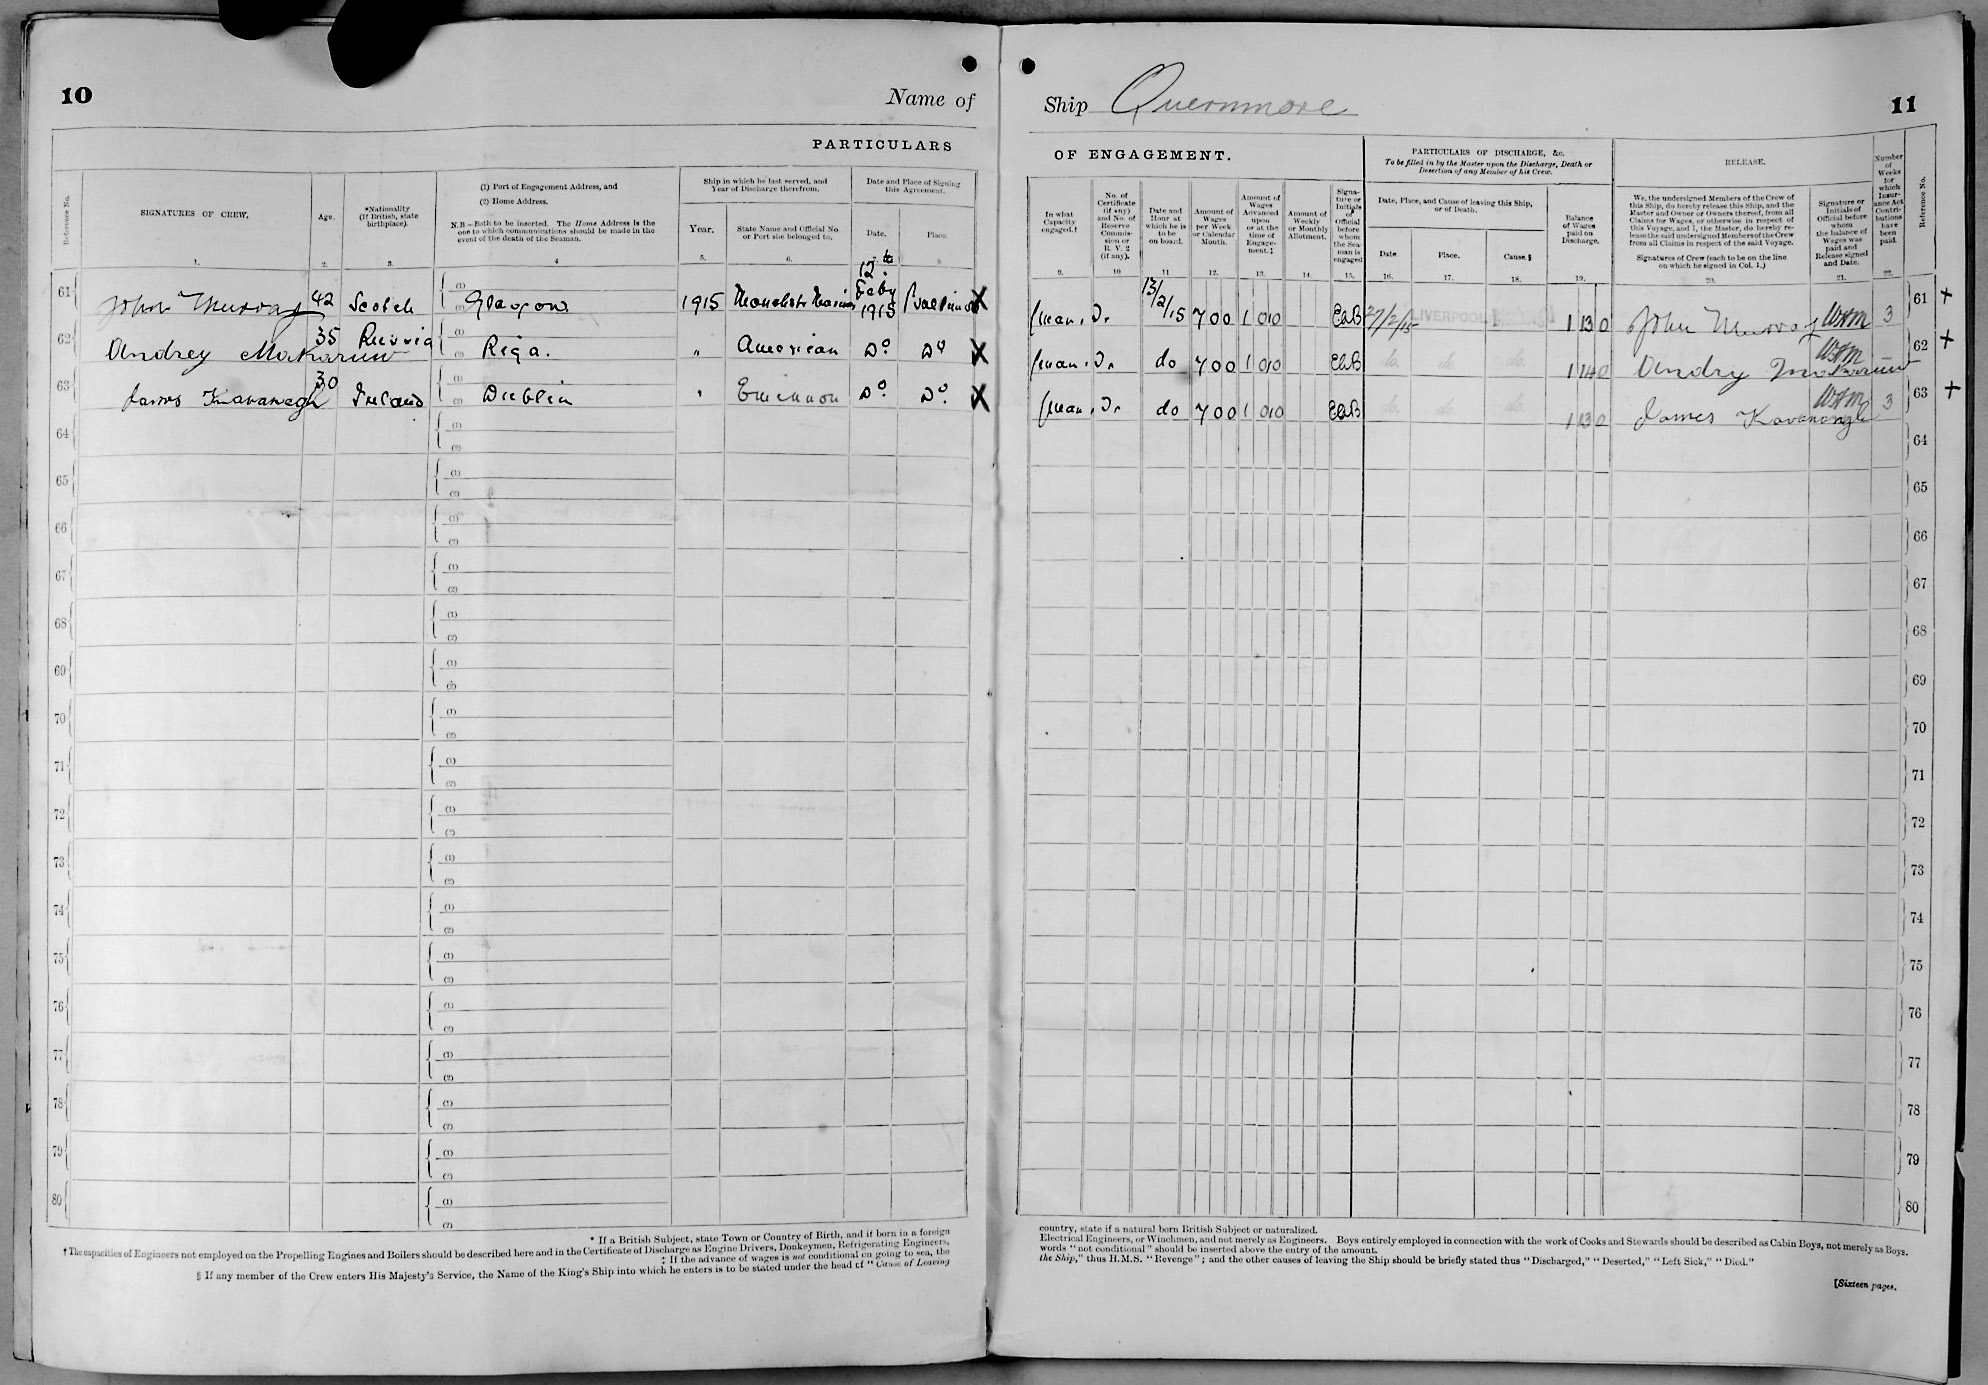 10
Name of
Ship Quernmore
11
PARTICULARS
OF ENGAGEMENT.
PARTICULARS OF DISCHARGE, &c.
To be filled in by the Master upon the Discharge, Death or
Desertion of any Member of his Crew.
RELEASE.
Number
of
Weeks
for
which
Insur-
ance Act
Contri-
butions
have
been
paid.
Reference No.
SIGNATURES OF CREW.
Age.
*Nationality
(If British, state
birthplace).
(1) Port of Engagement Address, and
(2) Home Address.
N.B.—Both to be inserted. The Home Address is the
one to which communications should be made in the
event of the death of the Seaman.
Ship in which he last served, and
Year of Discharge therefrom.
Year.
State Name and Official No.
or Port she belonged to.
Date and Place of Signing
this Agreement.
Date.
Place.
In what
Capacity
engaged.†
No. of
Certificate
(if any)
and No. of
Reserve
Commis-
sion or
R. V. 2
(if any).
Date and
Hour at
which he is
to be
on board.
Amount of
Wages
per Week
or Calendar
Month.
Amount of
Wages
Advanced
upon
or at the
time of
Engage-
ment.‡
Amount of
Weekly
or Monthly
Allotment.
Signa-
ture or
Initials
of
Official
before
whom
the Sea-
man is
engaged
Date, Place, and Cause of leaving this Ship,
or of Death.
Date
Place.
Cause.§
Balance
of Wages
paid on
Discharge.
We, the undersigned Members of the Crew of
this Ship, do hereby release this Ship, and the
Master and Owner or Owners thereof, from all
Claims for Wages, or otherwise in respect of
this Voyage, and I, the Master, do hereby re-
lease the said undersigned Members of the Crew
from all Claims in respect of the said Voyage.
Signatures of Crew (each to be on the line
on which he signed in Col. 1.)
Signature or
Initials of
Official before
whom
the balance of
Wages was
paid and
Release signed
and Date.
Reference No.
1. 2. 3. 4 5. 6. 7. 8
9. 10 11 12. 13. 14. 15. 16. 17. 18. 19. 20. 21. 22.
61 John Murray 42 Scotch (1) (2) Glasgow 1915 12th Feby 1915 X
13/2/15 7 0 0 1 0 0 EAB 27/2/15 LIVERPOOL 1 13 0 John Murray WHM 3 61 +
62 Andrey 35 Russia (1) (2) Riga. " American Do Do X
do 7 0 0 1 0 0 EAB do. do. do. 1 14 0 Andrey WHM — 62 +
63 James Kavanagh 30 Ireland (1) (2) Dublin " Do Do X
do 7 0 0 1 0 0 EAB do. do. do. 1 13 0 James Kavanagh WHM 3 63 +
64 (1) (2) 64
65 (1) (2) 65
66 (1) (2) 66
67 (1) (2) 67
68 (1) (2) 68
69 (1) (2) 69
70 (1) (2) 70
71 (1) (2) 71
72 (1) (2) 72
73 (1) (2) 73
74 (1) (2) 74
75 (1) (2) 75
76 (1) (2) 76
77 (1) (2) 77
78 (1) (2) 78
79 (1) (2) 79
80 (1) (2) 80
* If a British Subject, state Town or Country of Birth, and if born in a foreign
country, state if a natural born British Subject or naturalized.
† The capacities of Engineers not employed on the Propelling Engines and Boilers should be described here and in the Certificate of Discharge as Engine Drivers, Donkeymen, Refrigerating Engineers,
Electrical Engineers, or Winchmen, and not merely as Engineers. Boys entirely employed in connection with the work of Cooks and Stewards should be described as Cabin Boys, not merely as Boys.
‡ If the advance of wages is not conditional on going to sea, the
words "not conditional" should be inserted above the entry of the amount.
§ If any member of the Crew enters His Majesty's Service, the Name of the King's Ship into which he enters is to be stated under the head of "Cause of Leaving
the Ship," thus H.M.S. "Revenge"; and the other causes of leaving the Ship should be briefly stated thus "Discharged," "Deserted," "Left Sick," "Died."
[Sixteen pages.